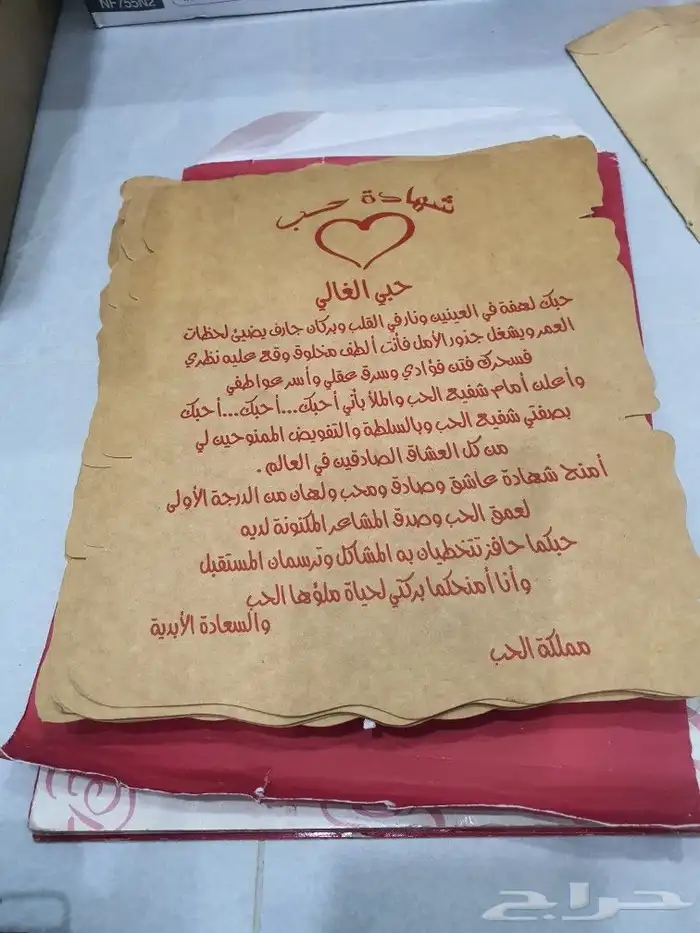 NF755N2
شهادة حب
حبي الغالي
حبك لهفة في العينين ونار في القلب وبركان جارف يضيئ لحظات
العمر ويشغل جذور الأمل فأنت ألطف مخلوق وقع عليه نظري
فسحرك فتن فؤادي وسرق عقلي وأسر عواطفي
وأعلن أمام شفيع الحب والملأ بأني أحبك...أحبك...أحبك
بصفتي شفيع الحب وبالسلطة والتفويض الممنوحين لي
من كل العشاق الصادقين في العالم .
أمنح شهادة عاشق وصادق ومحب ولهان من الدرجة الأولى
لعمق الحب وصدق المشاعر المكنونة لديه
حبكما حافز تتخطيان به المشاكل وترسمان المستقبل
وأنا أمنحكما بركتي لحياة ملؤها الحب
والسعادة الأبدية
مملكة الحب
حراج